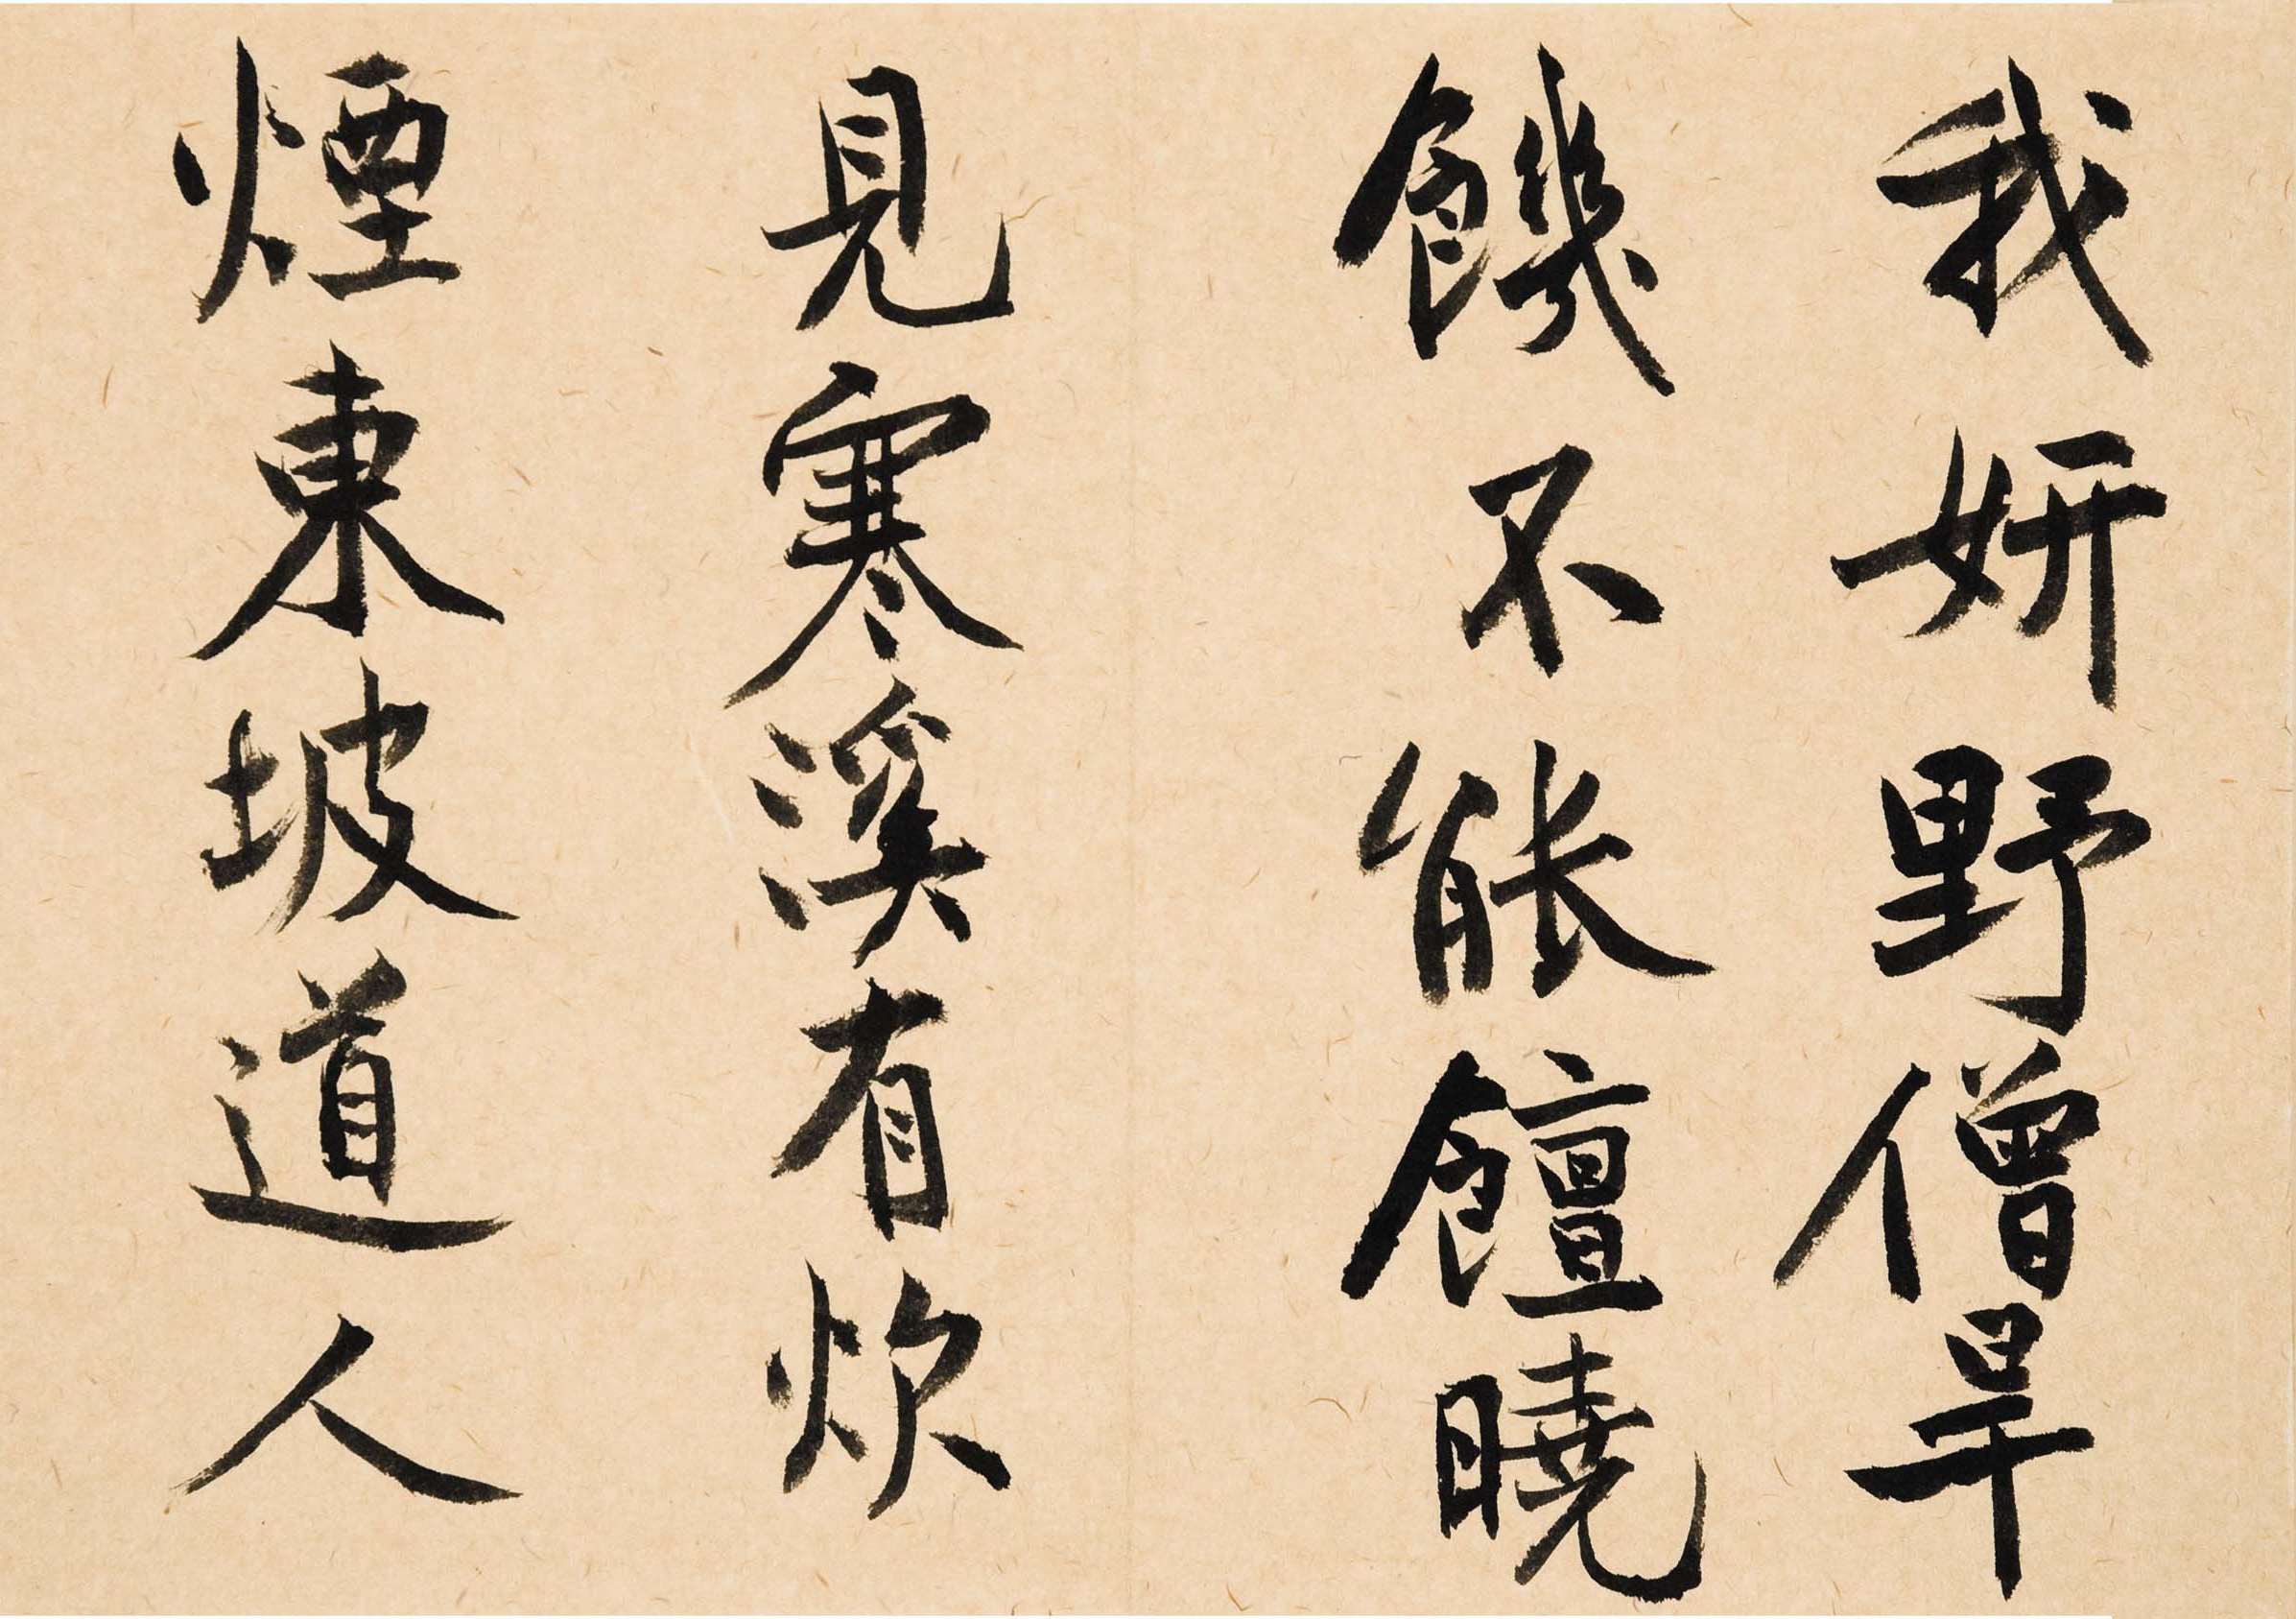 我妍野僧旱
饑不能饘曉
見寒溪有炊
煙東坡道人